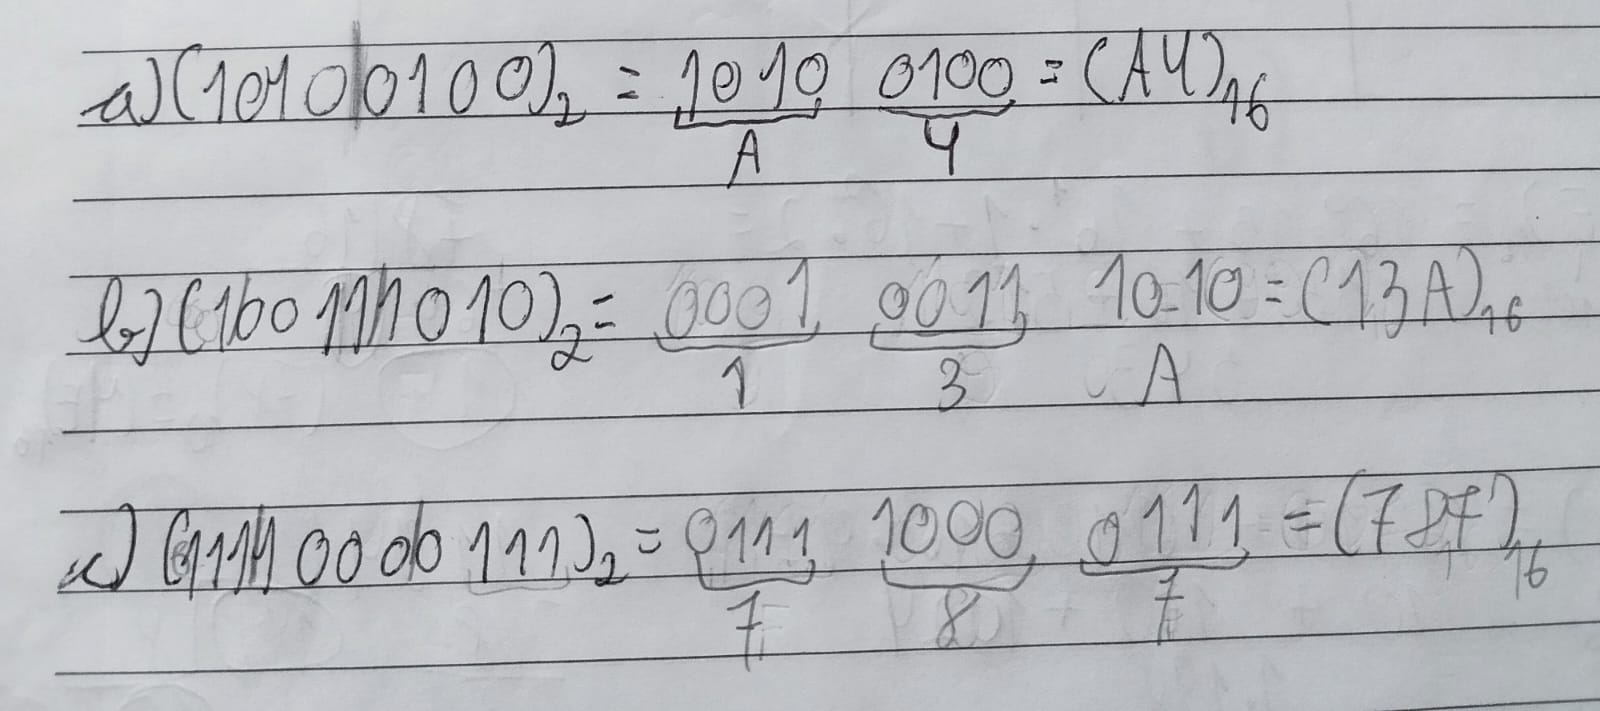 a) (10100100)₂ = 1010 0100 = (A4)₁₆
A 4
b) (100111010)₂ = 0001 0011 1010 = (13A)₁₆
1 3 A
c) (11110000111)₂ = 0111 1000 0111 = (787)₁₆
7 8 7